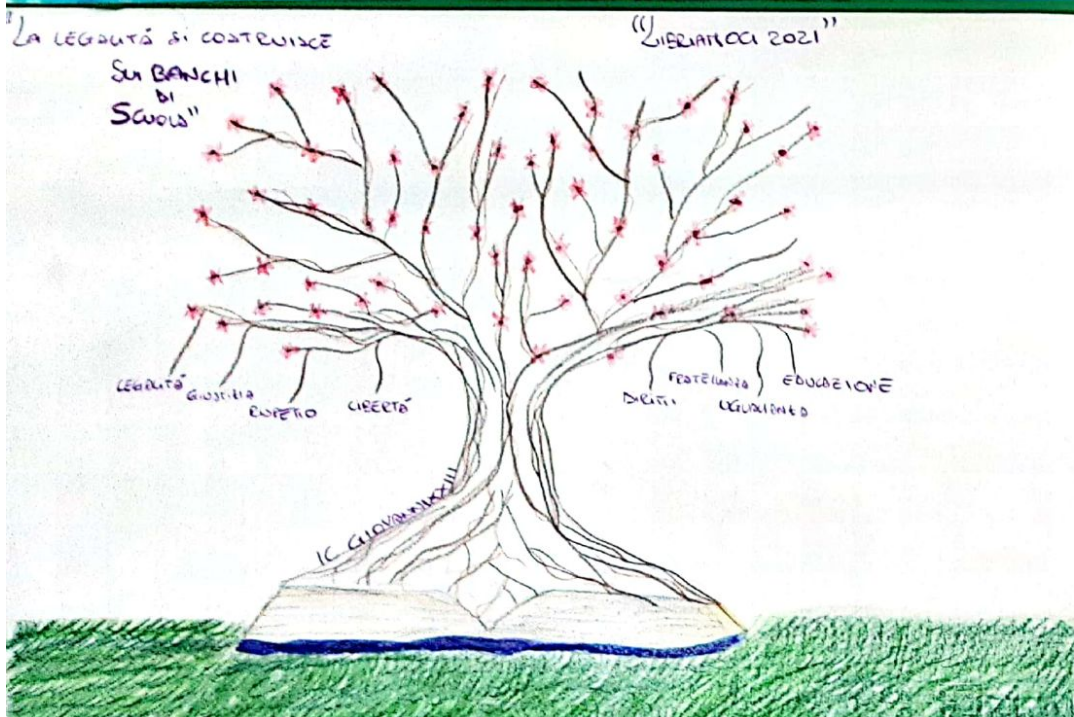 "LA LEGALITÁ SI COSTRUISCE
SUI BANCHI
DI
SCUOLA"
"LIBRIAMOCI 2021"
LEGALITÁ
GIUSTIZIA
RISPETTO
LIBERTÁ
DIRITTI
FRATELLANZA
UGUALIANZA
EDUCAZIONE
IC GIOVANNI XXIII